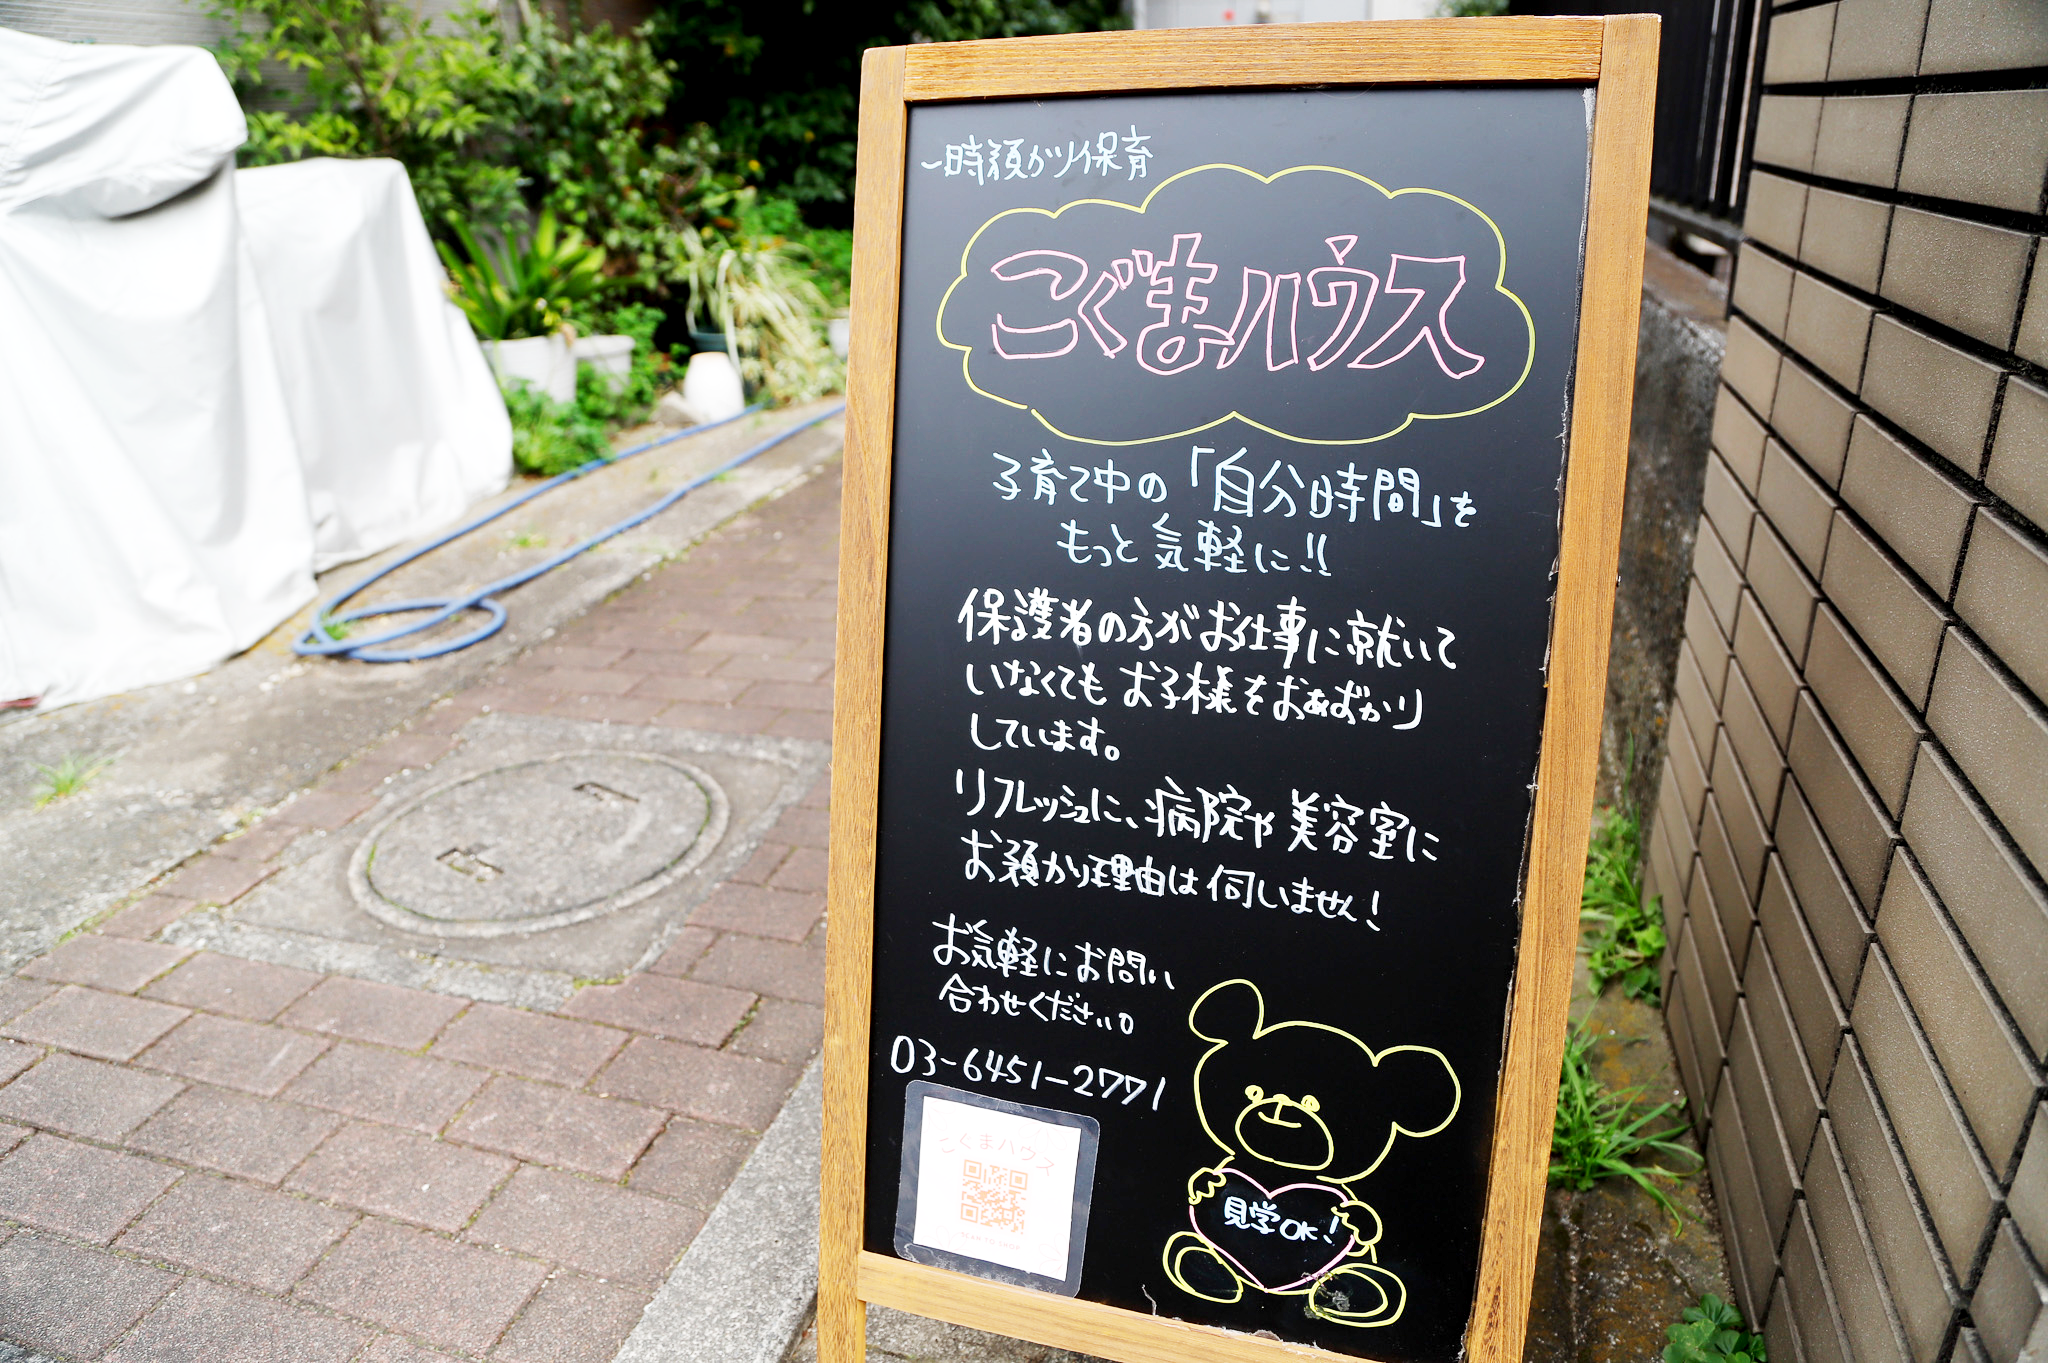 一時預かり保育
こぐまハウス
子育て中の「自分時間」を
もっと気軽に!!
保護者の方がお仕事に就いて
いなくても お子様をおあずかり
しています。
リフレッシュに、病院や美容室に
お預かり理由は伺いません!
お気軽にお問い
合わせください。
03-6451-2771
こぐまハウス
見学OK!